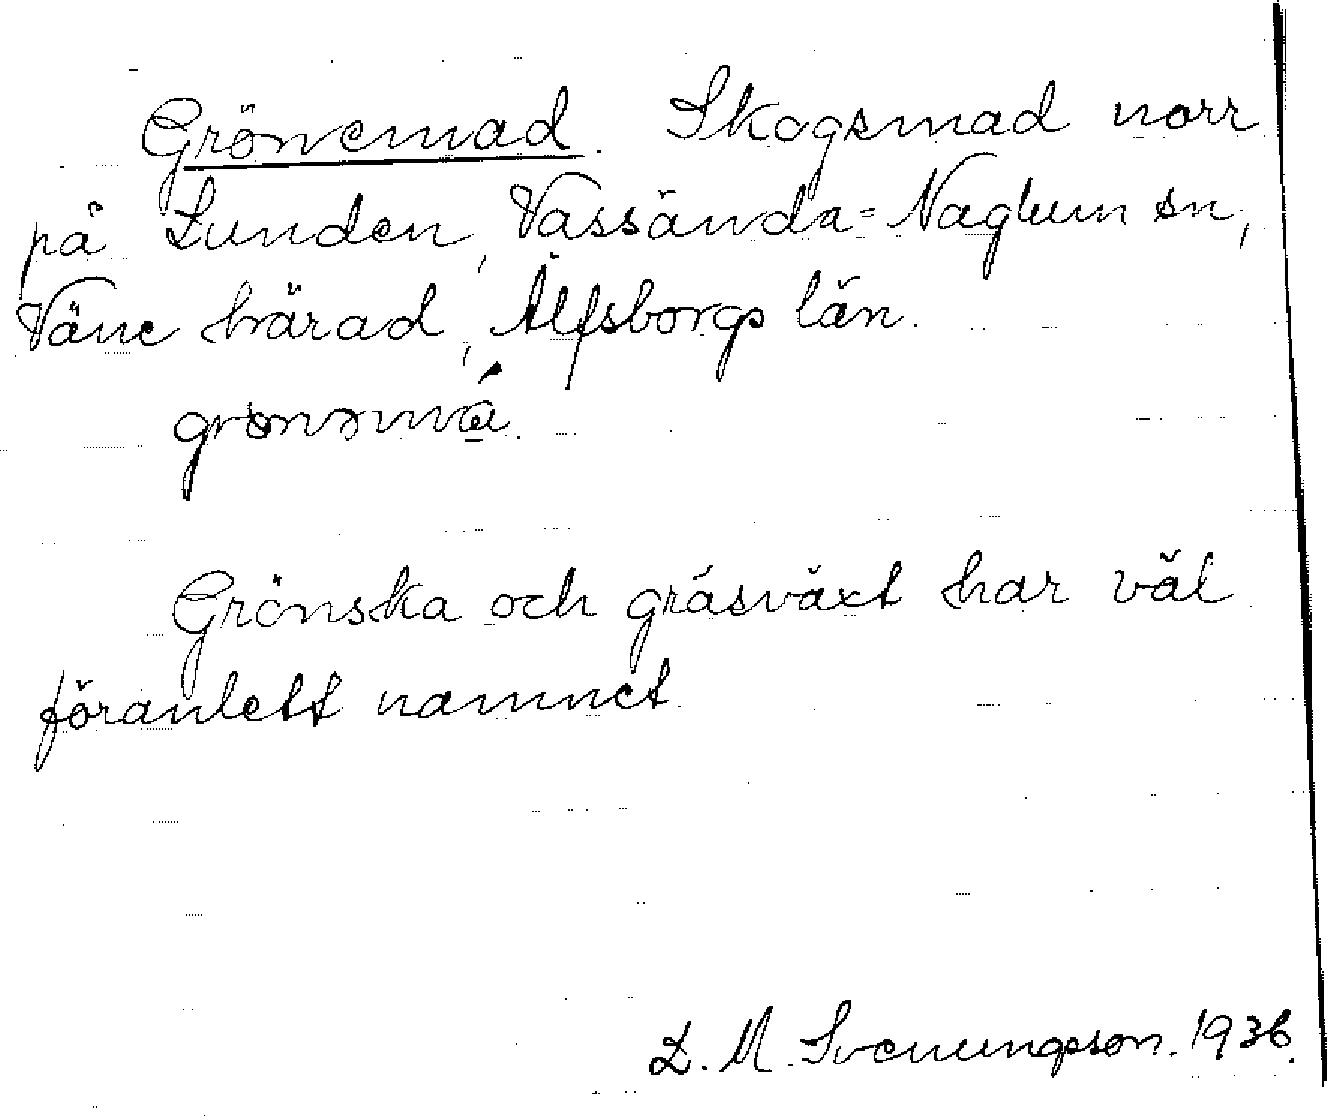 Grönemad. Skogsmad norr
på Lunden, Vassända-Naglum sn,
Väne härad, Älfsborgs län.
Grönska och gräsväxt har väl
föranlett namnet
L. M. Svenungson. 1936.